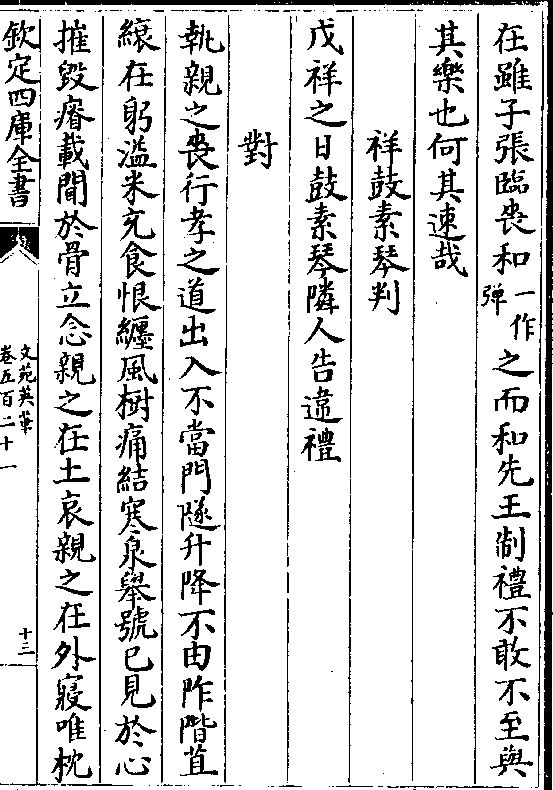 在雖子張臨喪和一作弹之而和先王制禮不敢不至與
其樂也何其速哉
祥鼓素琴判
戊祥之日鼓素琴隣人告違禮
對
執親之喪行孝之道出入不當門隧升降不由阼階苴
縗在躬溢米充食恨纏風樹痛結寒泉舉號已見於心
摧毀瘠載聞於骨立念親之在土哀親之在外寢唯枕
欽定四庫全書
文苑英華
卷五百二十一
十三